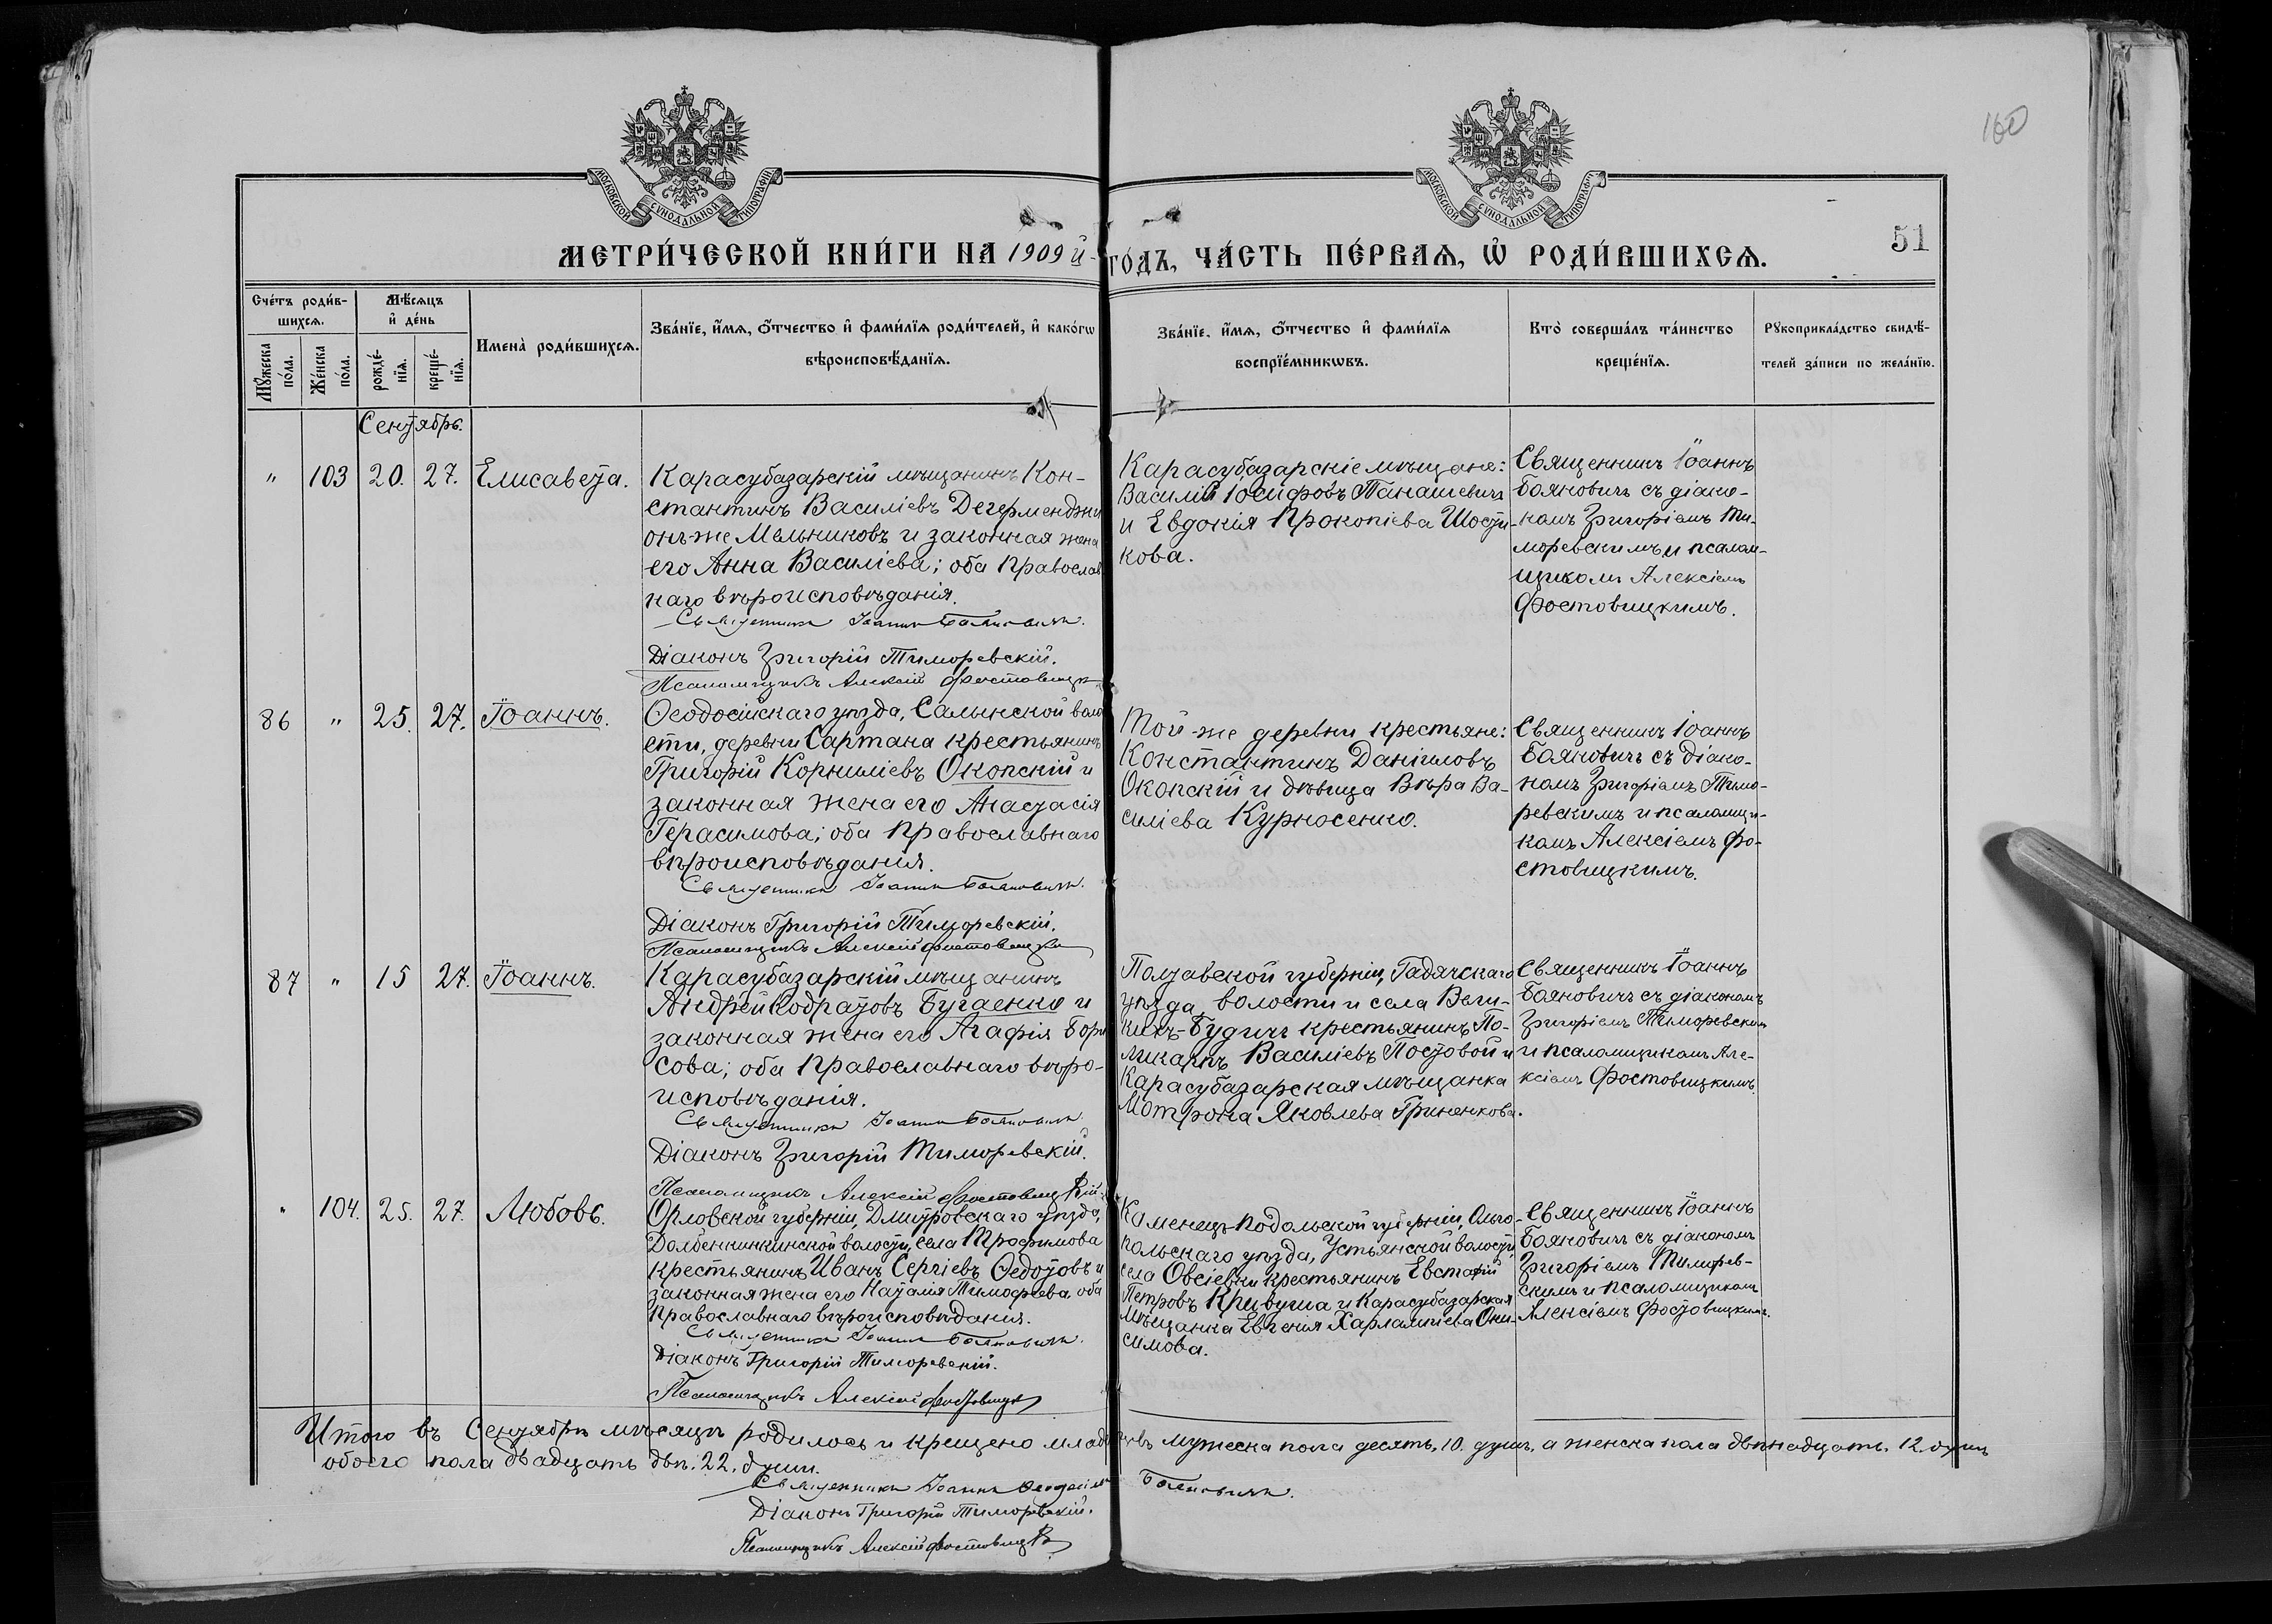 160
МОСКОВСКОЙ СѴНОДАЛЬНОЙ ТИПОГРАФІИ
МОСКОВСКОЙ СѴНОДАЛЬНОЙ ТИПОГРАФІИ
51
МЕТРИ́ЧЕСКОЙ КНИ́ГИ НА 1909 й
ГО́ДЪ, ЧА́СТЬ ПЕ́РВАѦ, Ѡ҆ РОДИ́ВШИХСѦ.
Сче́тъ роди́в-
шихсѧ.
Мѣ́сѧцъ
и҆ де́нь
Мꙋ́жеска
по́ла.
Же́нска
по́ла.
рожде́-
нїѧ.
креще́-
нїѧ.
Имена̀ роди́вшихсѧ.
Зва́нїе, и҆́мѧ, ѻ҆́тчество и҆ фами́лїѧ роди́телей, и҆ како́гѡ
вѣроисповѣ́данїѧ.
Зва́нїе, и҆́мѧ, ѻ҆́тчество и҆ фами́лїѧ
воспрїе́мникѡвъ.
Кто̀ соверша́лъ та́инство
креще́нїѧ.
Рꙋкоприкла́дство свидѣ́-
телей за́писи по жела́нїю.
Сентябрь.
" 103 20. 27. Елисавета.
Карасубазарскій мѣщанинъ Кон-
стантинъ Василіевъ Дегерменджи
онъ-же Мельниковъ и законная жена
его Анна Василіева; оба Православ
наго вѣроисповѣданія.
Священникъ Іоаннъ Бояновичъ.
Діаконъ Григорій Тиморевскій.
Псаломщикъ Алексій Фостовицк
Карасубазарскіе мѣщане:
Василій Іосифовъ Танашевичъ
и Евдокія Прокопіева Шости-
кова.
Священникъ Іоаннъ
Бояновичъ съ діако-
номъ Григоріемъ Ти-
моревскимъ и псалом-
щикомъ Алексіемъ
Фостовицкимъ.
86 " 25. 27. Іоаннъ.
Ѳеодосійскаго уѣзда, Салынской воло
сти, деревни Сартана крестьянинъ
Григорій Корниліевъ Окопскій и
законная жена его Анастасія
Герасимова; оба Православнаго
вѣроисповѣданія.
Священникъ Іоаннъ Бояновичъ.
Діаконъ Григорій Тиморевскій.
Псаломщикъ Алексій Фостовицкі
Той-же деревни крестьяне:
Константинъ Даніиловъ
Окопскій и дѣвица Вѣра Ва-
силіева Курносенко.
Священникъ Іоаннъ
Бояновичъ съ діако-
номъ Григоріемъ Тимо-
ревскимъ и псаломщи-
комъ Алексіемъ Фо-
стовицкимъ.
87 " 15 27. Іоаннъ.
Карасубазарскій мѣщанинъ
Андрей Кодратовъ Бугаенко и
законная жена его Агафія Бори
сова; оба Православнаго вѣро-
исповѣданія.
Священникъ Іоаннъ Бояновичъ
Діаконъ Григорій Тиморевскій.
Псаломщикъ Алексій Фостовицкій
Полтавской губерніи, Гадячскаго
уѣзда, волости и села Вели-
кихъ-Будичъ крестьянинъ По-
ликарпъ Василіевъ Постовой и
Карасубазарская мѣщанка
Мотрона Яковлева Гриненкова.
Священникъ Іоаннъ
Бояновичъ съ діакономъ
Григоріемъ Тиморевскимъ
и псаломщикомъ Але-
ксіемъ Фостовицкимъ.
" 104. 25. 27. Любовь.
Орловской губерніи, Дмитровскаго уѣзда,
Долбенкинкинской волости, села Трофимова
крестьянинъ Иванъ Сергіевъ Ѳедотовъ и
законная жена его Наталія Тимоѳеева оба
Православнаго вѣроисповѣданія.
Священникъ Іоаннъ Бояновичъ.
Діаконъ Григорій Тиморевскій.
Псаломщикъ Алексій Фостовицк
Каменецъ-Подольской губерніи, Ольго-
польскаго уѣзда, Устьянской волости
села Овсіевки крестьянинъ Евстафій
Петровъ Кривуша и Карасубазарская
мѣщанка Евгенія Харлампіева Они-
симова.
Священникъ Іоаннъ
Бояновичъ съ діакономъ
Григоріемъ Тиморев-
скимъ и псаломщикомъ
Алексіемъ Фостовицкимъ.
Итого въ Сентябрѣ мѣсяцѣ родилось и крещено младенцевъ мужеска пола десять. 10. душъ, а женска пола двѣнадцать. 12. душъ
обоего пола двадцать двѣ. 22. души.
Священникъ Іоаннъ Бояновичъ.
Діаконъ Григорій Тиморевскій.
Псаломщикъ Алексій Фостовицк